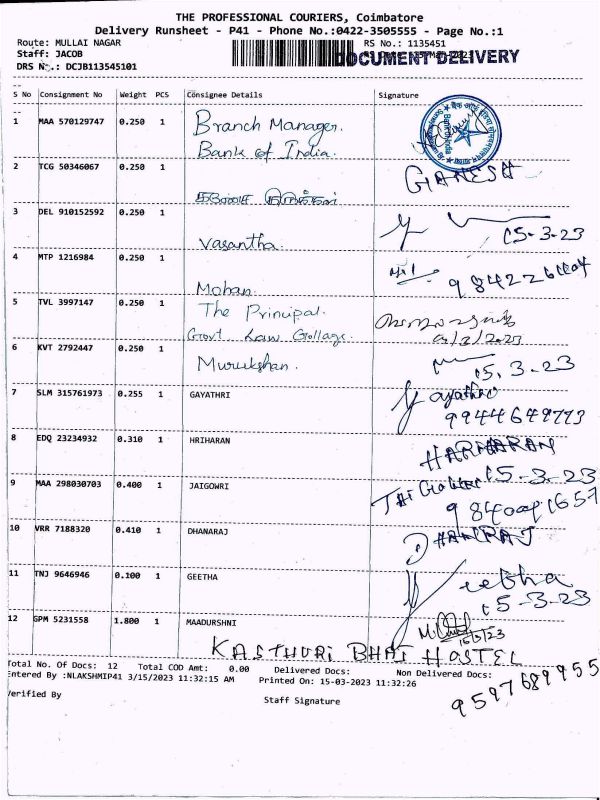 THE PROFESSIONAL COURIERS, Coimbatore
Delivery Runsheet - P41 - Phone No.:0422-3505555 - Page No.:1
Route: MULLAI NAGAR
RS No.: 1135451
Staff: JACOB
DOCUMENT DELIVERY
DRS No.: DCJB113545101
S No Consignment No Weight PCS Consignee Details Signature
1 MAA 570129747 0.250 1 Branch Manager.
Bank of India.
2 TCG 50346067 0.250 1
GANESH
3 DEL 910152592 0.250 1 Vasantha 15-3-23
4 MTP 1216984 0.250 1 Mohan
5 TVL 3997147 0.250 1 The Prinupal.
Govt Law Gollage.
6 KVT 2792447 0.250 1 Murukshan. 15.3-23
7 SLM 315761973 0.255 1 GAYATHRI Gayathri
9944649773
8 EDQ 23234932 0.310 1 HRIHARAN HARIHARAN
15-3-23
9 MAA 298030703 0.400 1 JAIGOWRI
10 VRR 7188320 0.410 1 DHANARAJ DHANRAJ
11 TNJ 9646946 0.100 1 GEETHA
15-3-23
12 GPM 5231558 1.800 1 MAADURSHNI
15/3/23
KASTHURI BHAI HOSTEL
Total No. Of Docs: 12 Total COD Amt: 0.00 Delivered Docs: Non Delivered Docs:
Entered By :NLAKSHMIP41 3/15/2023 11:32:15 AM Printed On: 15-03-2023 11:32:26
9597689955
Verified By Staff Signature